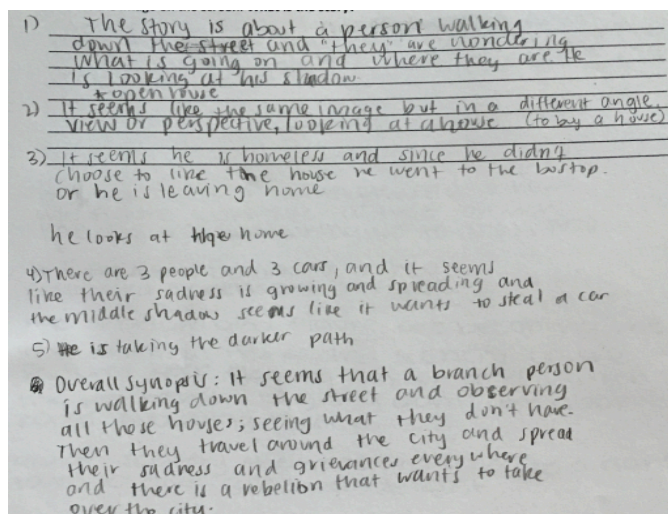 1) The story is about a person walking
down the street and "they" are wondering
what is going on and where they are. He
is looking at his shadow.
*open house
2) It seems like the same image but in a different angle,
view or perspective, looking at a house (to buy a house)
3) It seems he is homeless and since he didn't
choose to like the house he went to the bostop.
or he is leaving home
he looks at home
4) There are 3 people and 3 cars, and it seems
like their sadness is growing and spreading and
the middle shadow seems like it wants to steal a car
5) He is taking the darker path
Overall synopsis: It seems that a branch person
is walking down the street and observing
all those houses; seeing what they don't have.
Then they travel around the city and spread
their sadness and grievances everywhere
and there is a rebelion that wants to take
over the city.